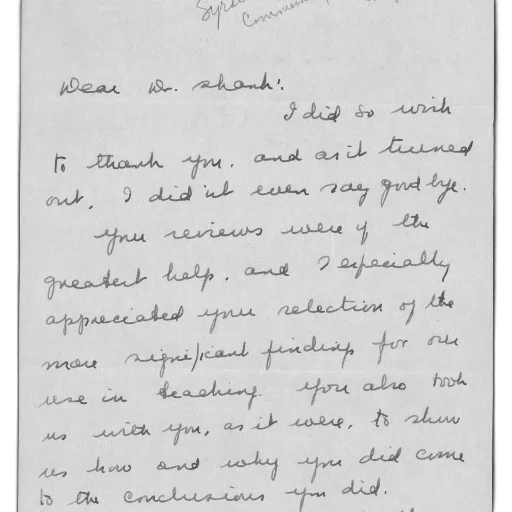 Dear Dr. Shank:
I did so wish
to thank you. and as it turned
out, I didn't even say good bye.
Your reviews were of the
greatest help. and I especially
appreciated your selection of the
more significant findings for our
use in teaching. You also took
us with you, as it were, to show
us how and why you did come
to the conclusions you did.